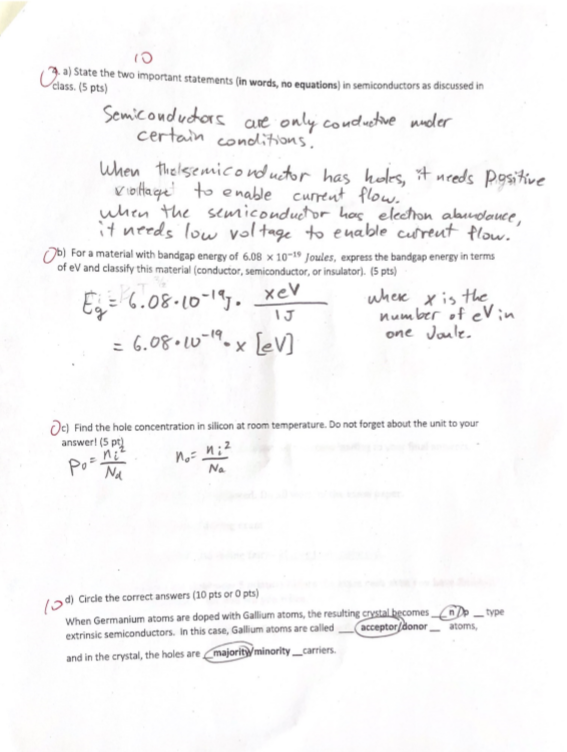 10
a) State the two important statements (in words, no equations) in semiconductors as discussed in
class. (5 pts)
Semiconductors are only conductive under
certain conditions.
When the semiconductor has holes, it needs positive
voltage to enable current flow.
when the semiconductor has electron abundance,
it needs low voltage to enable current flow.
0 b) For a material with bandgap energy of 6.08 × 10⁻¹⁹ Joules, express the bandgap energy in terms
of eV and classify this material (conductor, semiconductor, or insulator). (5 pts)
Eg = 6.08·10⁻¹⁹J · xeV / 1J
where x is the
number of eV in
one Joule.
= 6.08·10⁻¹⁹·x [eV]
0 c) Find the hole concentration in silicon at room temperature. Do not forget about the unit to your
answer! (5 pt)
p₀ = nᵢ² / Nd n₀ = nᵢ² / Na
10 d) Circle the correct answers (10 pts or 0 pts)
When Germanium atoms are doped with Gallium atoms, the resulting crystal becomes _ n/p _ type
extrinsic semiconductors. In this case, Gallium atoms are called __ acceptor/donor _ atoms,
and in the crystal, the holes are _ majority/minority _ carriers.